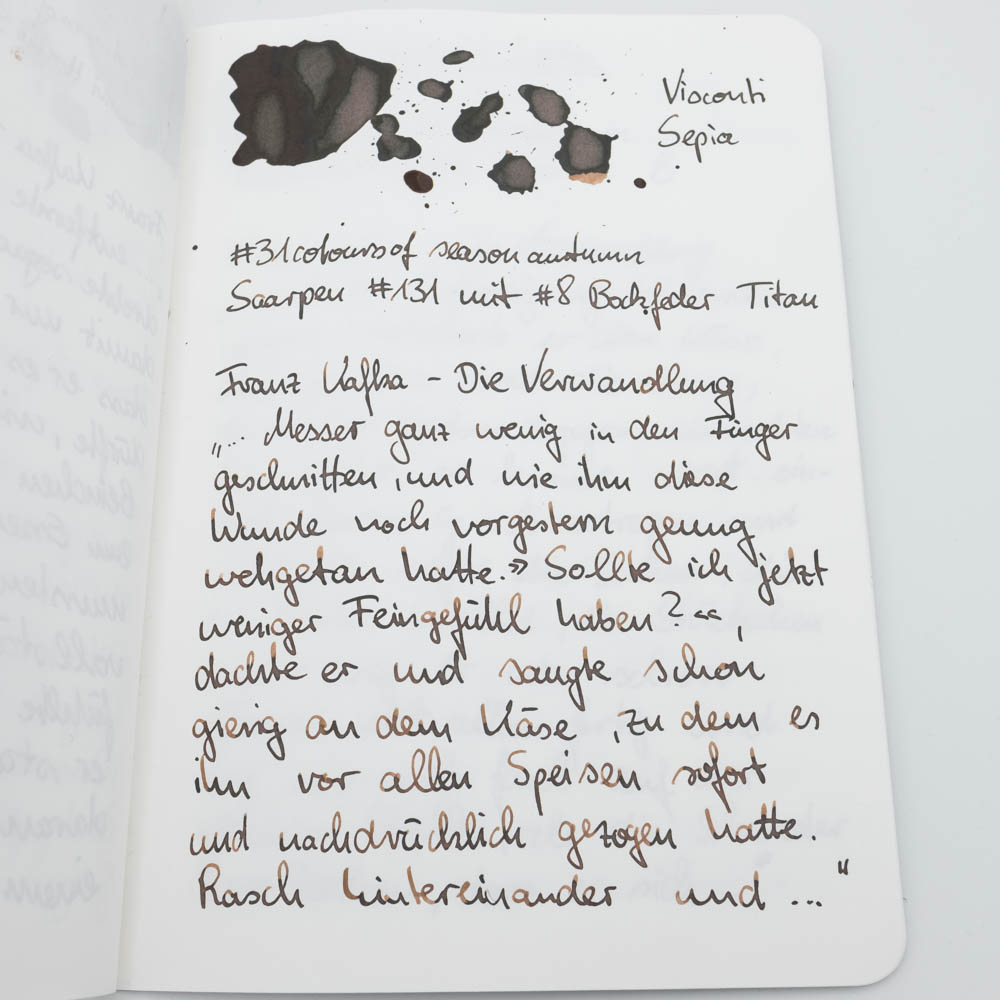 Visconti
Sepia
#31coloursof seasonautumn
Saarpen #131 mit #8 Bockfeder Titan
Franz Kafka - Die Verwandlung
„... Messer ganz wenig in den Finger
geschnitten, und wie ihm diese
Wunde noch vorgestern genug
wehgetan hatte. » Sollte ich jetzt
weniger Feingefühl haben? «,
dachte er und saugte schon
gierig an dem Käse, zu dem es
ihn vor allen Speisen sofort
und nachdrücklich gezogen hatte.
Rasch hintereinander und ..."